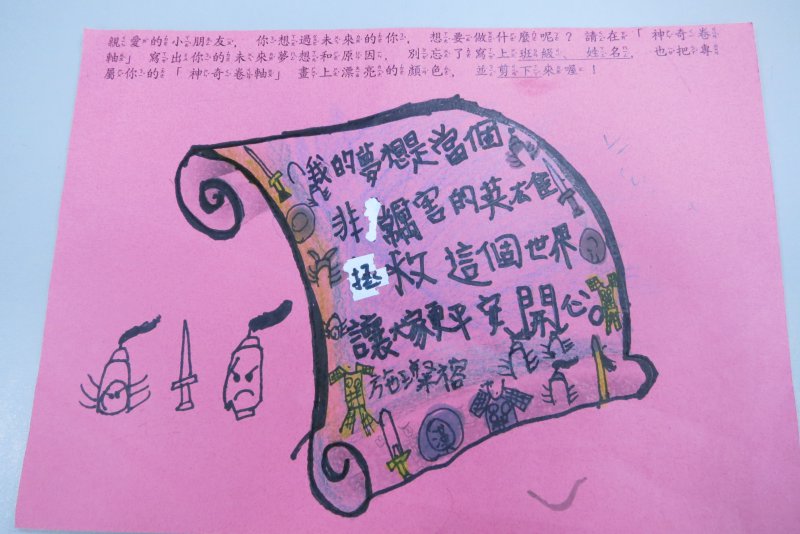 親愛的小朋友，你想過未來的你，想要做什麼呢？請在「神奇卷
軸」寫出你的未來夢想和原因，別忘了寫上班級、姓名，也把專
屬你的「神奇卷軸」畫上漂亮的顏色，並剪下來喔！
我的夢想是當個
非 厲害的英雄
拯救這個世界
讓大家更平安開心。
施